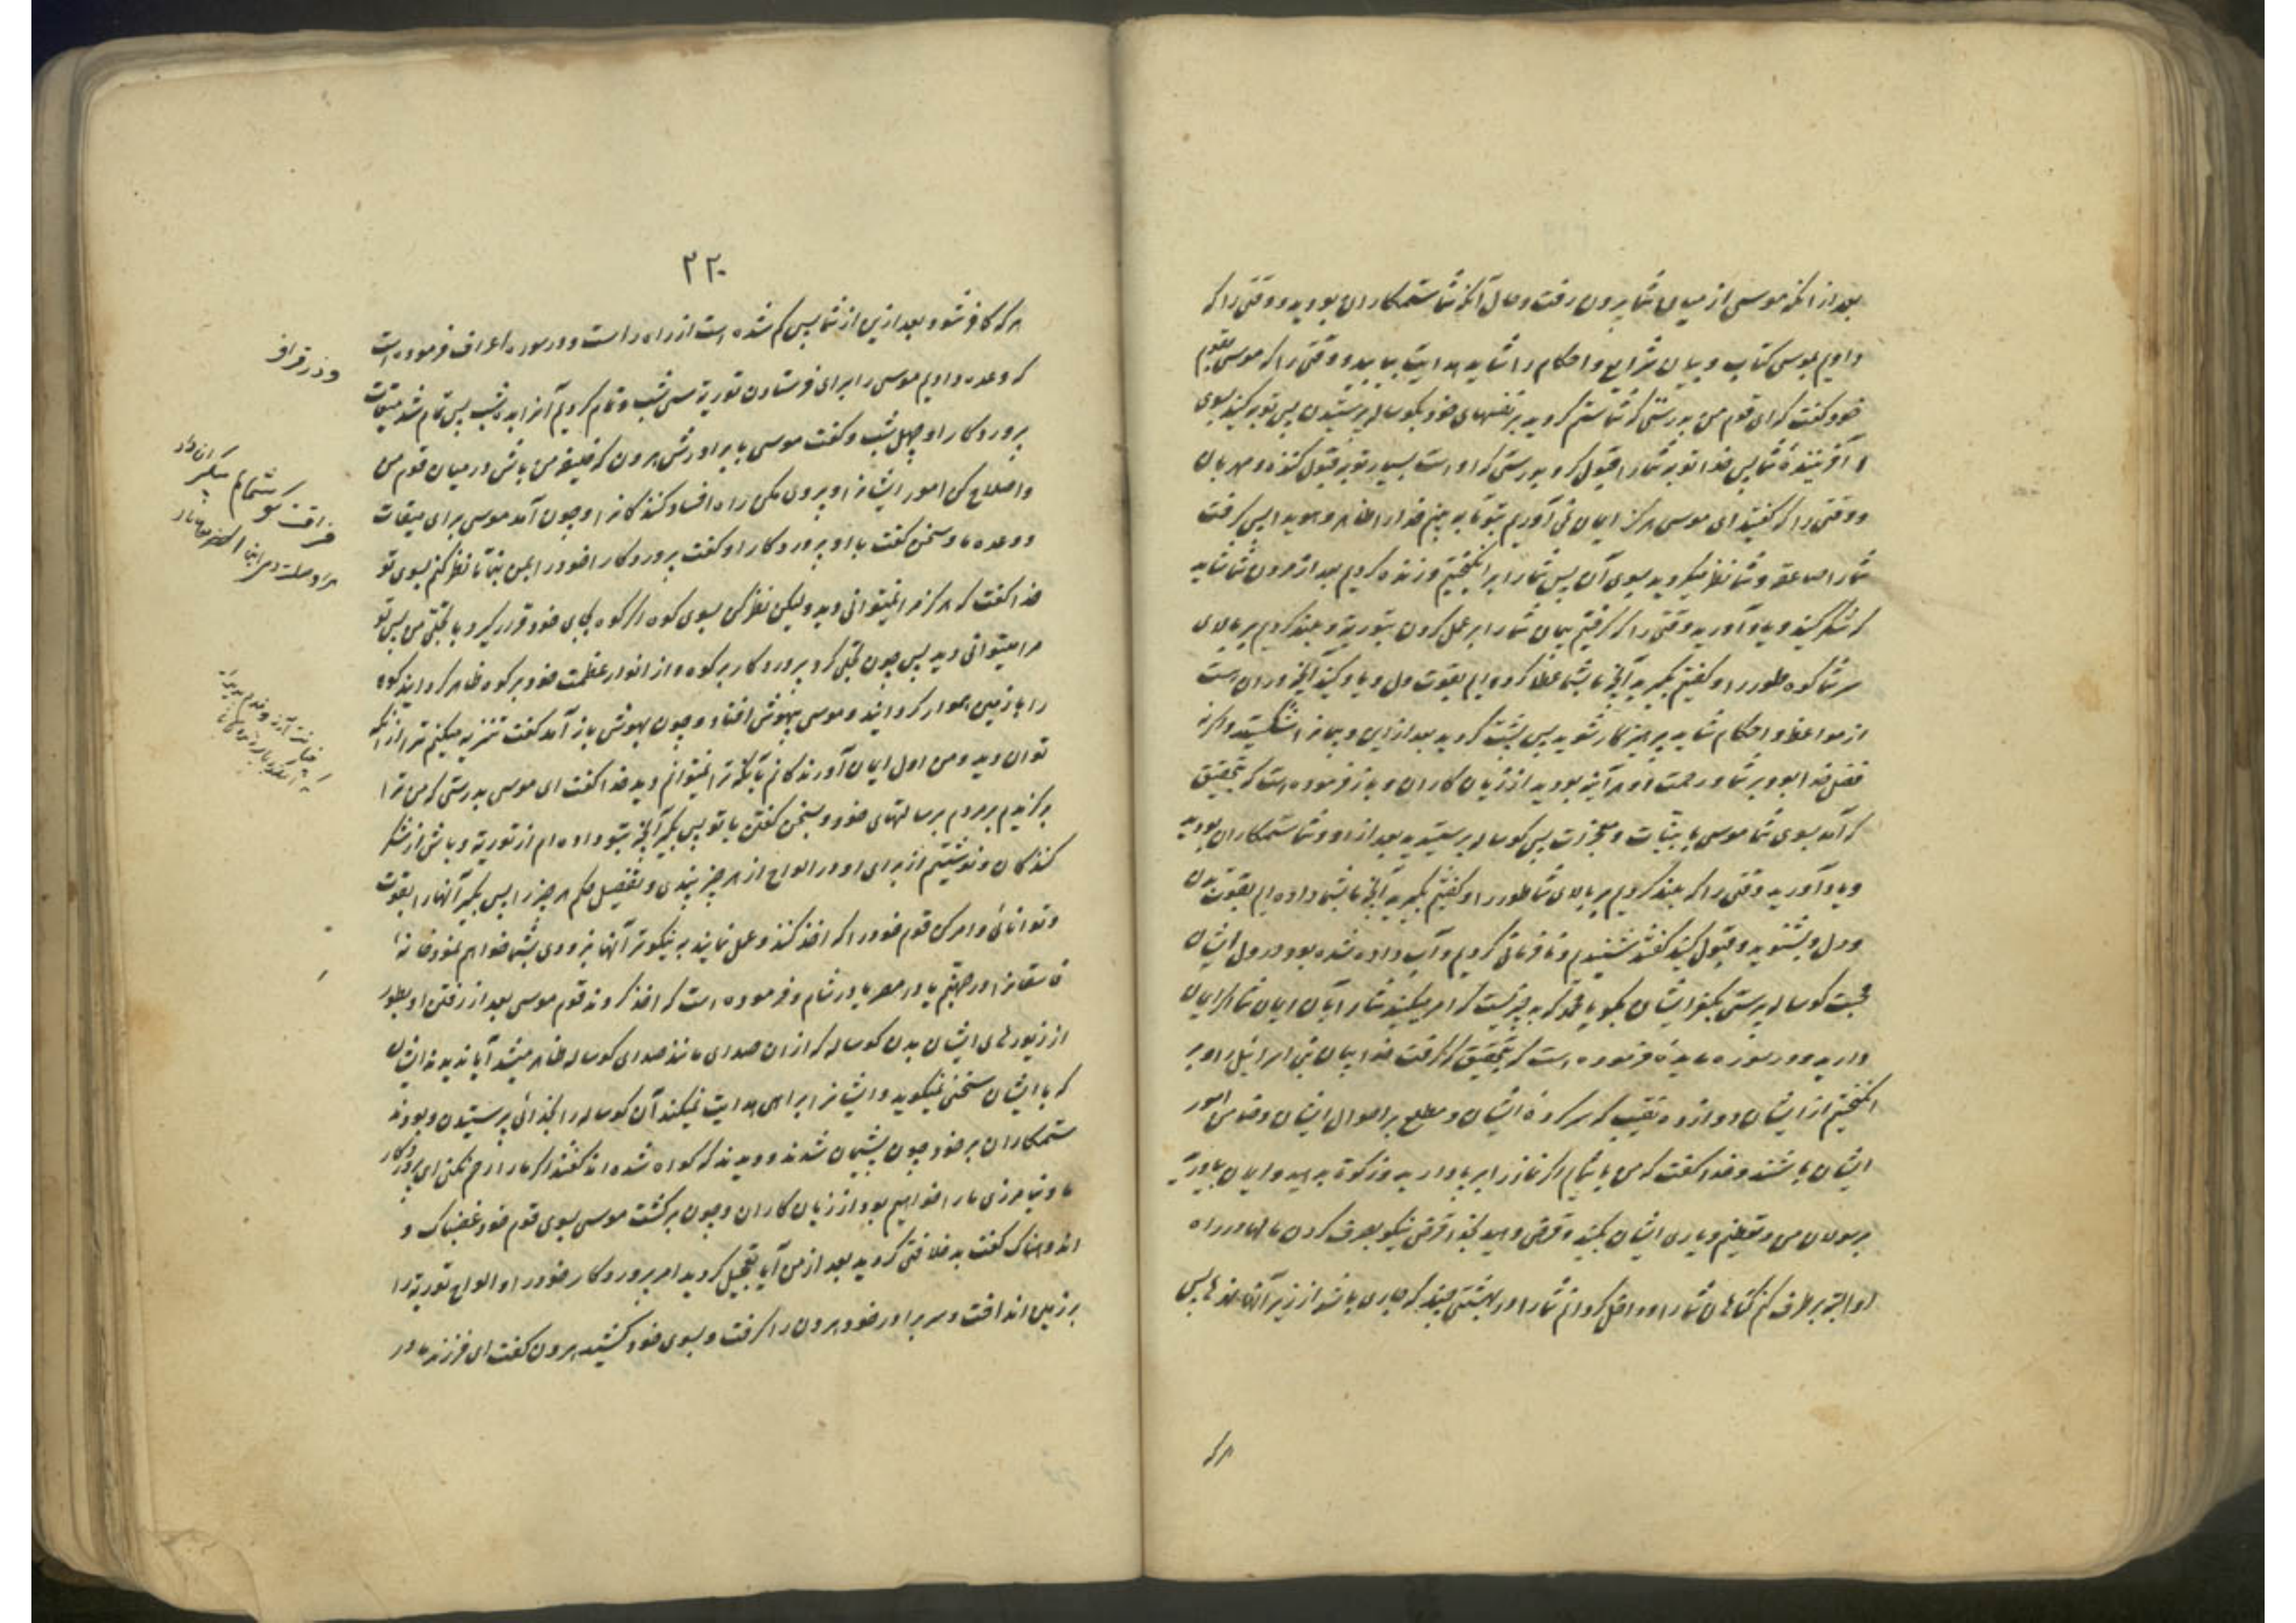 بعد از انکه موسی از میان شما بیرون رفت و حال آنکه شما ستمکاران بودید و وقتی را که
دادیم بموسی کتاب و بیان شرایع و احکام را شاید هدایت بیابید و وقتی را که موسی بقوم
خود گفت که ای قوم من بدرستی که شما ستم کردید بر نفسهای خود بگوساله پرستیدن پس توبه کنید بسوی
آفرینندهٔ شما پس خدا توبه شما را قبول کرد بدرستی که او است بسیار توبه قبول کننده و مهربان
و وقتی را که گفتید ای موسی هرگز ایمان نمی آوریم بتو تا به بینم خدا را ظاهر و هویدا پس گرفت
شما را صاعقه و شما نظر میکردید بسوی آن پس شما را بر انگیختیم و زنده کردیم بعد از مردن شما شاید
که شکر کنید و یاد آورید وقتی را که گرفتیم پیمان شما را بر عمل کردن بتوریة و بلند کردیم بر بالای
سر شما کوه طور را و گفتیم بگیرید آنچه ما بشما عطا کرده ایم بقوت دل و یاد کنید آنچه در ان است
از مواعظ و احکام شاید پرهیزکار شوید پس پشت کردید بعد از این و پیمانرا شکستید و اگر نه
فضل خدا بود بر شما و رحمت او هر آینه بودید از زیان کاران و باز فرموده است که بتحقیق
که آمد بسوی شما موسی با بینات و معجزات پس گوساله پرستیدید بعد از او و شما ستمکاران بودید
و یاد آورید وقتی را که بلند کردیم بر بالای شما طور را و گفتیم بگیرید آنچه ما بشما داده ایم بقوت بدن
و دل و بشنوید و قبول کنید گفتند شنیدیم و نافرمانی کردیم و آب داده شده بود در دل ایشان
محبت گوساله پرستی بکفر ایشان بگو یا محمد که بد چیزیست که امر میکند شما را بآن ایمان شما اگر ایمان
دارید و در سوره مایده فرموده است که بتحقیق که گرفت خدا پیمان بنی اسرائیل را و بر
انگیختیم از ایشان دوازده نقیب که سرکردهٔ ایشان و مطلع بر احوال ایشان و ضامن امور
ایشان باشند و خدا گفت که من با شمایم اگر نماز را بر پا دارید و زکوة بدهید و ایمان بیاورید
برسولان من و تعظیم و یاری ایشان بکنید و قرض دهید بخدا قرضی نیکو بصرف کردن مالها در راه
او البته بر طرف کنم گناهان شما را و داخل گردانم شما را در بهشتی چند که جاری باشد از زیر آنها نهرها پس
هر که
۲۲۰
هر که کافر شود بعد ازین از شما پس گم شده است از راه راست و در سوره اعراف فرموده است
که وعده دادیم موسی را برای فرستادن توریة سی شب و تمام کردیم آنرا بده شب پس تمام شد میقات
پروردگار او چهل شب و گفت موسی با برادرش هرون که خلیفه من باش در میان قوم من
و اصلاح کن امور ایشانرا و پیروی مکن راه افساد کنندگانرا و چون آمد موسی برای میقات
و وعده ما و سخن گفت با او پروردگار او گفت پروردگارا خود را بمن بنما تا نظر کنم بسوی تو
خدا گفت که هرگز مرا نمیتوانی دید و لیکن نظر کن بسوی کوه اگر کوه بجای خود قرار گیرد با تجلی من پس تو
مرا میتوانی دید پس چون تجلی کرد پروردگار بر کوه و از انوار عظمت خود بر کوه ظاهر گردانید کوه
را با زمین هموار گردانید و موسی بیهوش افتاد و چون بهوش باز آمد گفت تنزیه میکنم ترا از آنکه
توان دید و من اول ایمان آورندگانم بآنکه ترا نمیتوانم دید خدا گفت ای موسی بدرستی که من ترا
برگزیدم بر مردم برسالتهای خود و بسخن گفتن با تو پس بگیر آنچه بتو داده ام از توریة و باش از شکر
کنندگان و نوشتیم از برای او در الواح از هر چیز پندی و تفصیل حکم هر چیز را پس بگیر آنها را بقوت
و توانائی و امر کن قوم خود را که اخذ کنند و عمل نمایند به نیکوتر آنها بزودی بشما خواهم نمود خانهٔ
فاسقانرا در جهنم یا در مصر یا در شام و فرموده است که اخذ کردند قوم موسی بعد از رفتن او بطور
از زیورهای ایشان بدن گوساله که از ان صدای مانند صدای گوساله ظاهر میشد آیا ندیدند ایشان
که با ایشان سخن نمیگوید و ایشانرا براهی هدایت نمیکند آن گوساله را بخدائی پرستیدن و بودند
ستمکاران بر خود چون پشیمان شدند و دیدند که گمراه شده اند گفتند اگر ما را رحم نکنی ای پروردگار
ما و نیامرزی ما را خواهیم بود از زیان کاران و چون برگشت موسی بسوی قوم خود غضبناک و
اندوهناک گفت بد خلافتی کردید بعد از من آیا تعجیل کردید امر پروردگار خود را و الواح توریة را
بر زمین انداخت و سر برادر خود هرون را گرفت و بسوی خود کشید هرون گفت ای فرزند مادر